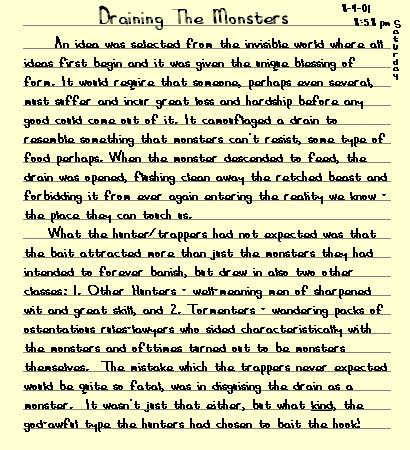 Draining The Monsters
8-4-01
8:58 pm
Saturday
An idea was selected from the invisible world where all
ideas first begin and it was given the unique blessing of
form. It would require that someone, perhaps even several,
must suffer and incur great loss and hardship before any
good could come out of it. It camouflaged a drain to
resemble something that monsters can't resist, some type of
food perhaps. When the monster descended to feed, the
drain was opened, flushing clean away the retched beast and
forbidding it from ever again entering the reality we know -
the place they can touch us.
What the hunter/trappers had not expected was that
the bait attracted more than just the monsters they had
intended to forever banish, but drew in also two other
classes: 1. Other Hunters - well-meaning men of sharpened
wit and great skill, and 2. Tormenters - wandering packs of
ostentatious rules-lawyers who sided characteristically with
the monsters and ofttimes turned out to be monsters
themselves. The mistake which the trappers never expected
would be quite so fatal, was in disguising the drain as a
monster. It wasn't just that either, but what kind, the
god-awful type the hunters had chosen to bait the hook!